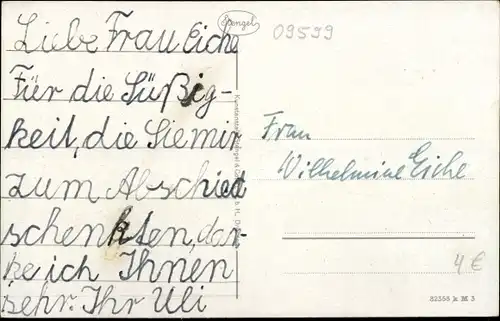 Spengel
09599
Liebe Frau Eiche
Für die Süßig-
keit, die Sie mir
zum Abschied
schenkten, dan-
ke ich Ihnen
sehr. Ihr Uli
Frau
Wilhelmine Eiche
4 €
82558 k M 3